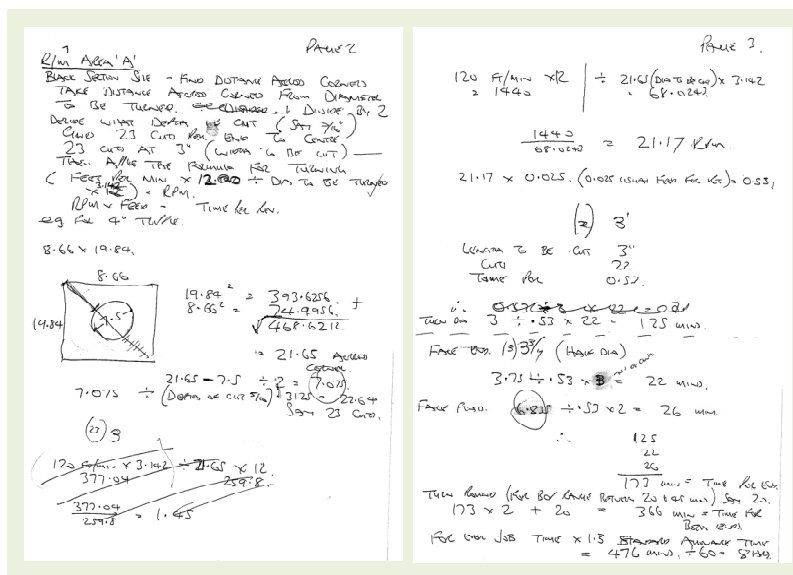 PAGE 2
R/m AREA 'A'
BLACK SECTION SIZE - FIND DISTANCE ACROSS CORNERS
TAKE DISTANCE ACROSS CORNERS FROM DIAMETER
TO BE TURNED. DIVIDE BY 2
DECIDE WHAT DEPTH OF CUT (SAY 5/16")
GIVES 23 CUTS PER END TO CENTRE
23 CUTS AT 3" (WIDTH TO BE CUT)
THEN APPLY THE FORMULA FOR TURNING
(FEET PER MIN × 12 ÷ DIA TO BE TURNED
× 3.142) = RPM.
RPM × FEED = TIME PER REV.
eg FOR 4"
8.66 × 19.84.
8.66
19.84
7.5
19.84² = 393.6256
8.66² = 74.9956 +
√468.6212
= 21.65 ACROSS
CORNER
21.65 - 7.5 ÷ 2 = 7.075
7.075 ÷ (DEPTH OF CUT 5/16) .3125 = 22.64
SAY 23 CUTS.
(23) 3
120 × 3.142 ÷ 21.65 × 12
377.04 259.8
377.04
259.8 = 1.45
PAGE 3.
120 FT/MIN × 12 ÷ 21.65 (DIA TO BE CUT) × 3.142
= 1440 = 68.0243
1440
68.0243 = 21.17 RPM
21.17 × 0.025. (0.025 USUAL FEED PER REV) = 0.53,
3"
LENGTH TO BE CUT 3"
CUTS 22
TIME PER 0.53.
TURN ON 3 ÷ .53 × 22 = 125 MINS.
FACE 3 3/4 (HALF DIA)
3.75 ÷ .53 × 3 = 22 MINS.
FACE 6.875 ÷ .53 × 2 = 26 MIN
∴ 125
22
26
173 MINS = TIME PER END.
TURN ROUND (FOR BOX RANGE BETWEEN 20 + 45 MIN) SAY 20.
173 × 2 + 20 = 366 MIN = TIME FOR
BOTH ENDS.
FOR EACH JOB TIME × 1.3 STANDARD ALLOWANCE TIME
= 476 MINS, ÷ 60 = 8 HRS.